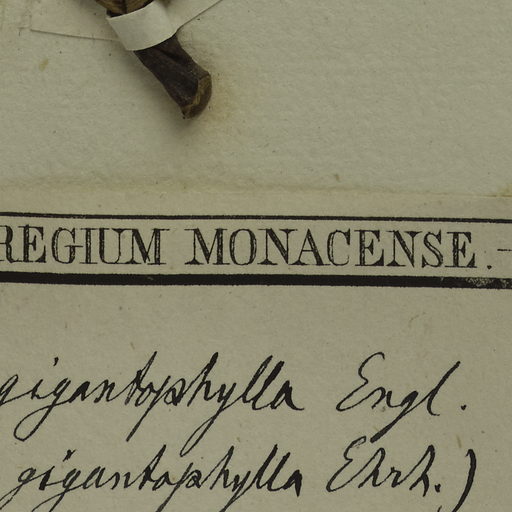 REGIUM MONACENSE.-
gigantophylla Engl.
gigantophylla Ehrh.)